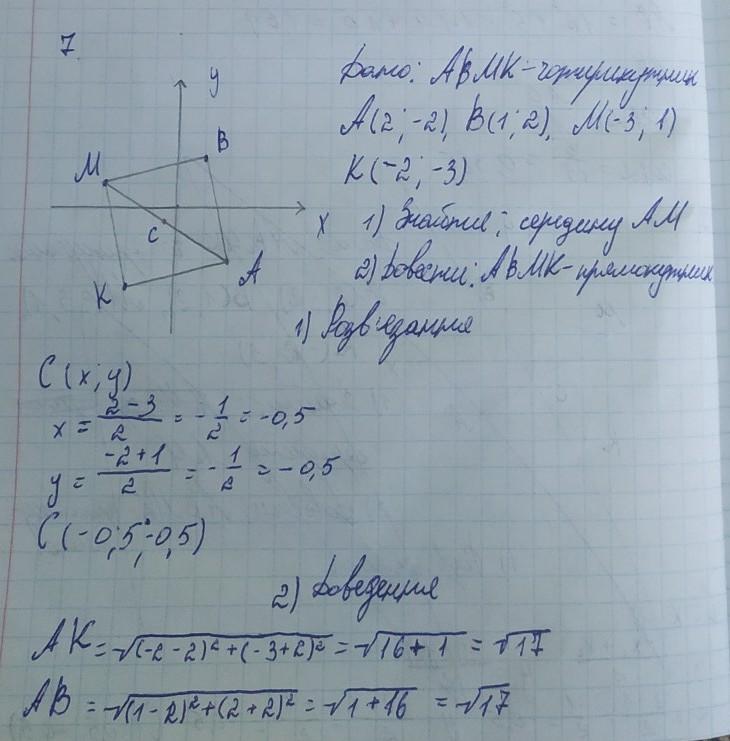 7.
y
Дано: ABMK - чотирикутник
A(2; -2), B(1; 2), M(-3; 1)
K(-2; -3)
B
M
x
C
A
K
1) Знайти: середину AM
2) Довести: ABMK - прямокутник
1) Розв'язання
C(x; y)
x = \frac{2-3}{2} = -\frac{1}{2} = -0,5
y = \frac{-2+1}{2} = -\frac{1}{2} = -0,5
C(-0,5; -0,5)
2) Доведення
AK = √((-2-2)² + (-3+2)²) = √(16+1) = √17
AB = √((1-2)² + (2+2)²) = √(1+16) = √17